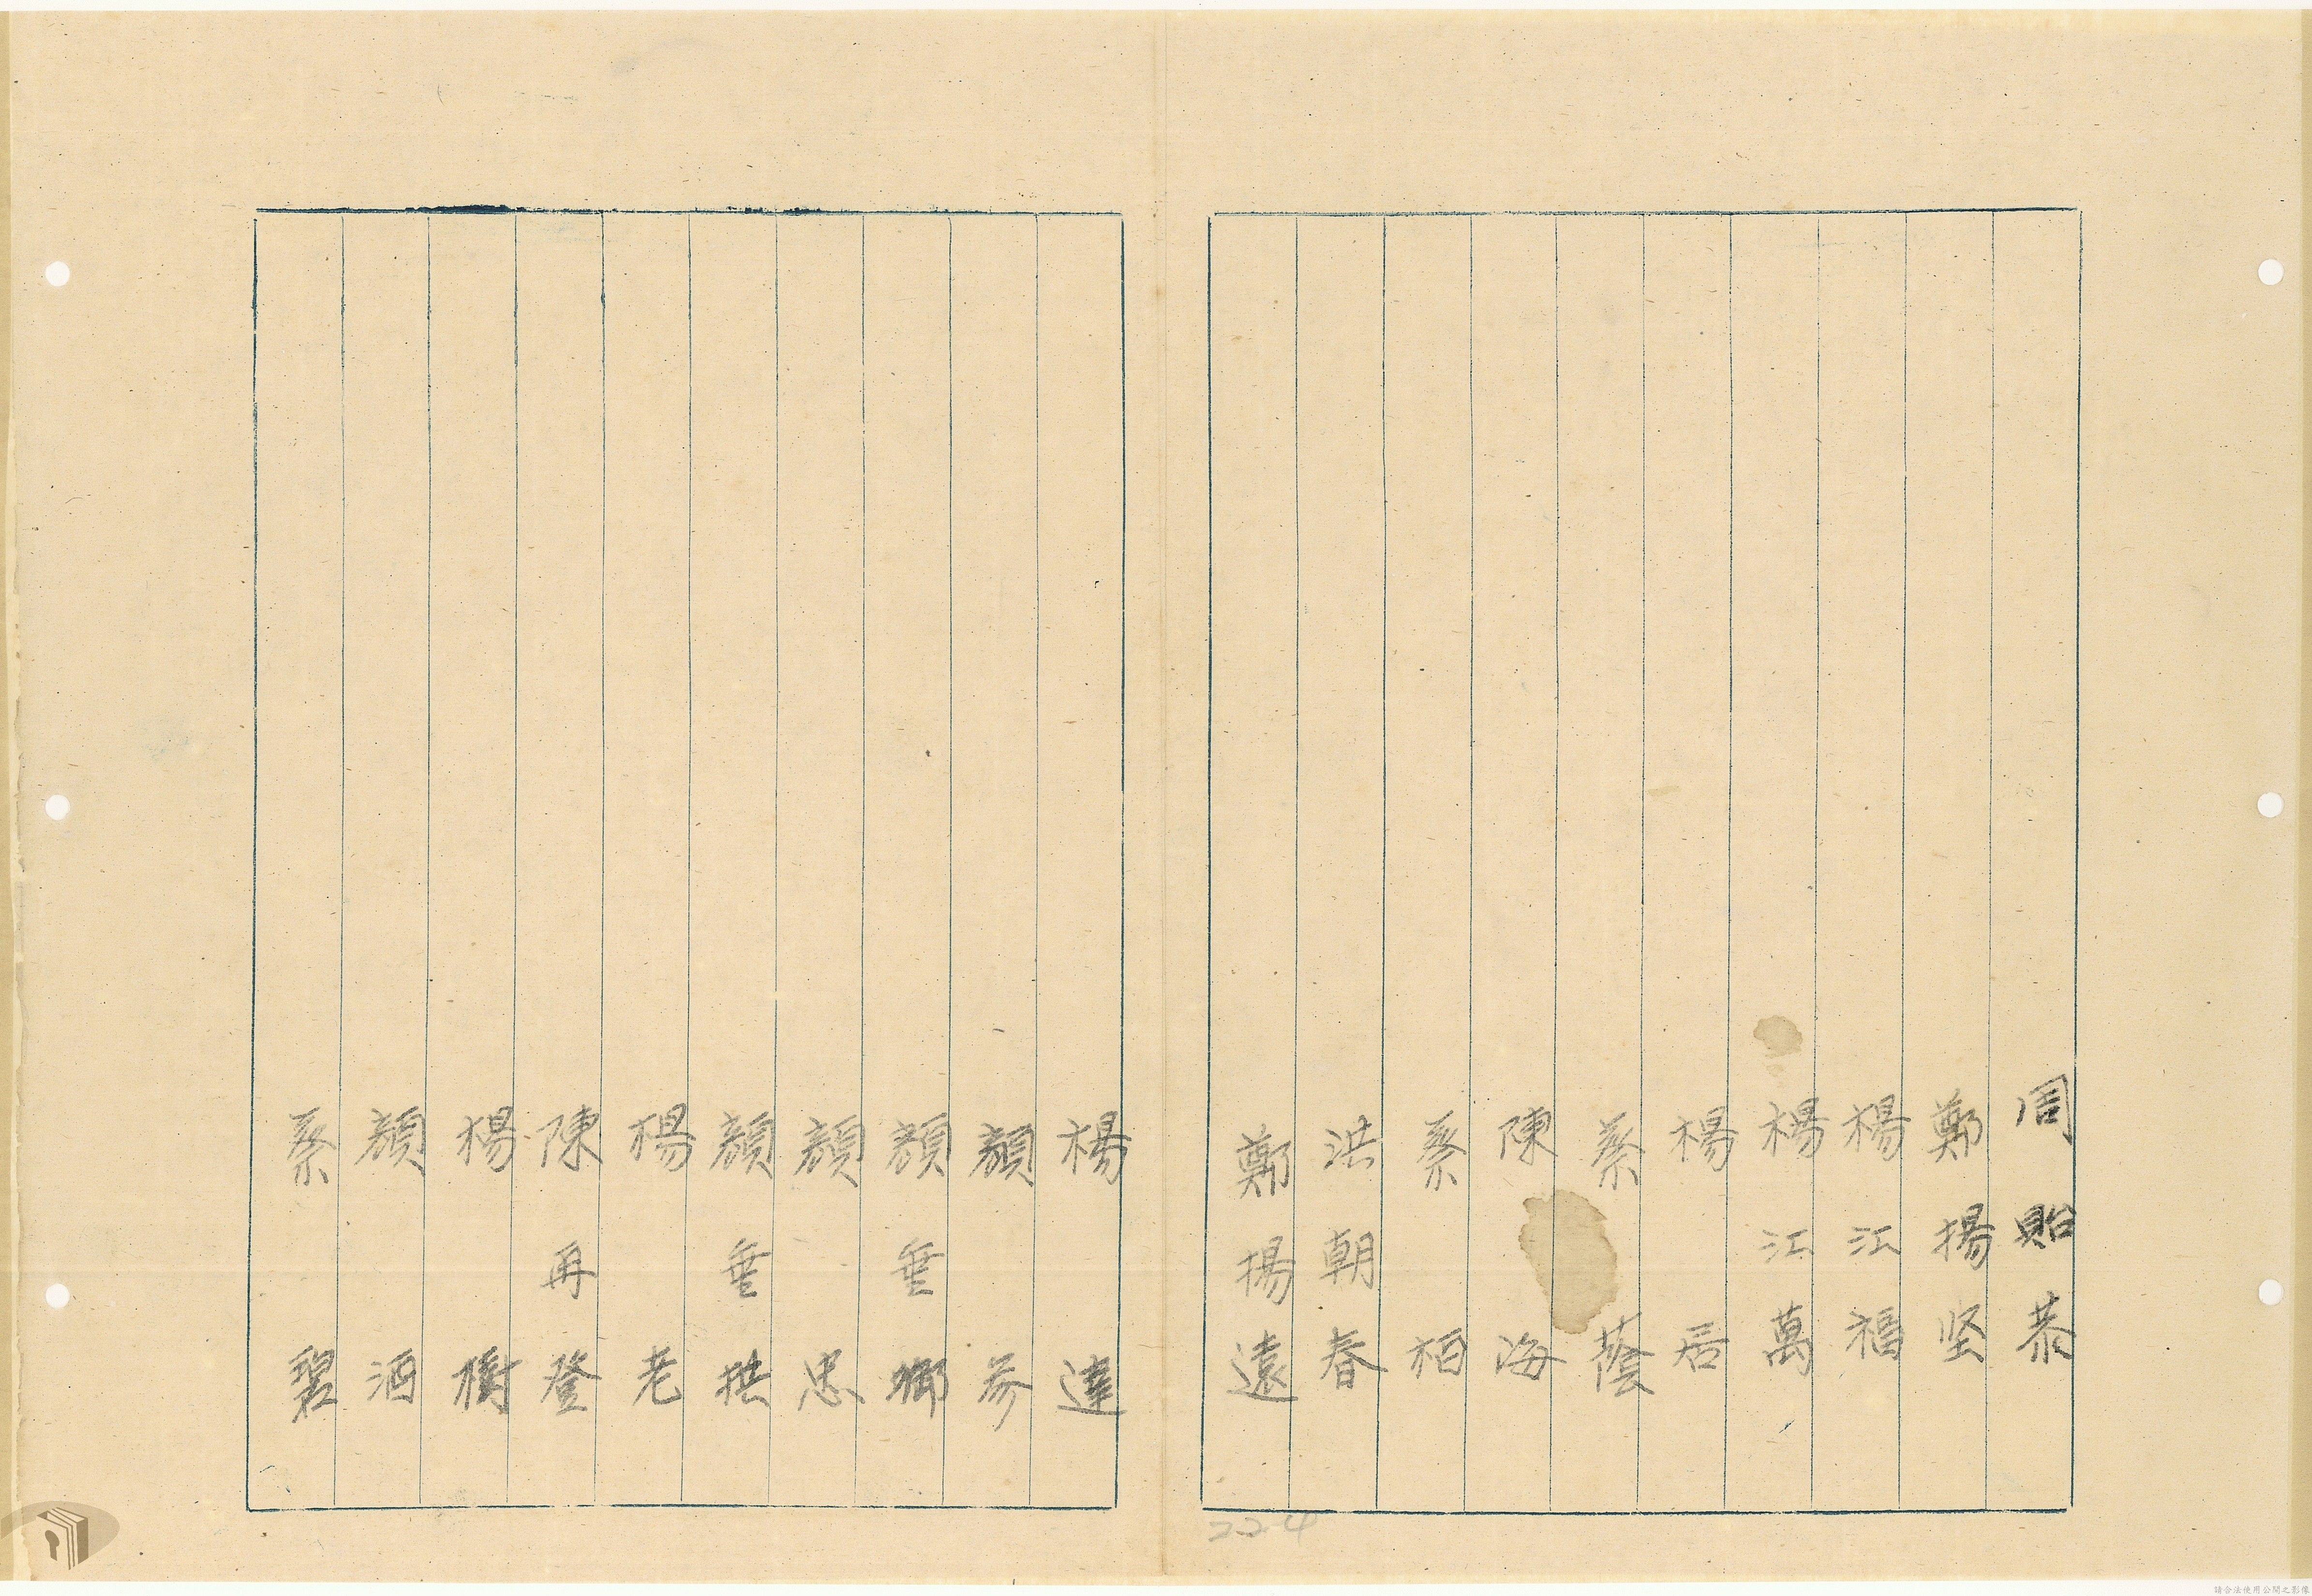 周貽恭
鄭揚坚
楊江福
楊江萬
楊居
蔡蔭
陳海
蔡柏
洪朝春
鄭揚遠
楊達
顏参
顏垂鄉
顏忠
顏垂拱
楊老
陳再登
楊樹
顏酒
蔡碧
224
請合法使用公開之影像